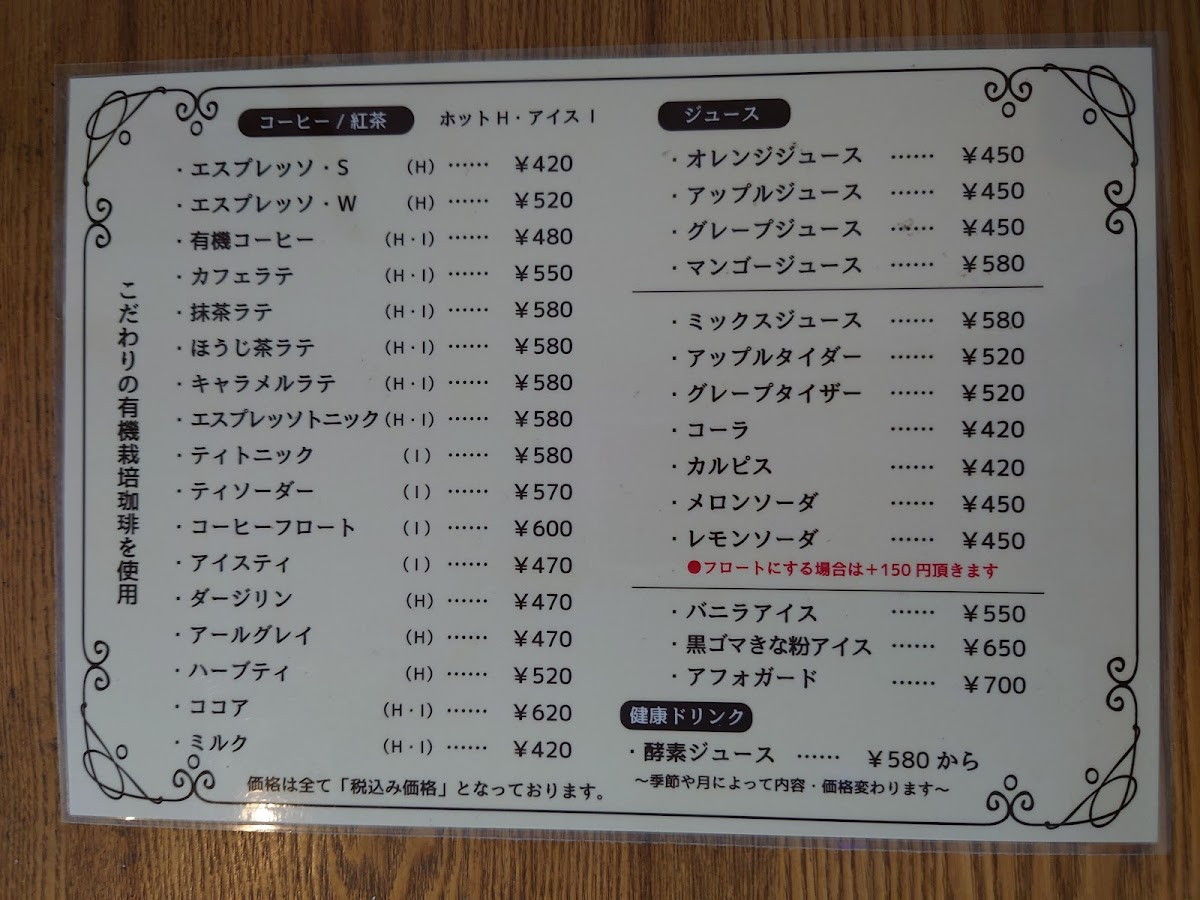 こだわりの有機栽培珈琲を使用
コーヒー / 紅茶 ホットH・アイスI
・エスプレッソ・S (H) …… ¥420
・エスプレッソ・W (H) …… ¥520
・有機コーヒー (H・I) …… ¥480
・カフェラテ (H・I) …… ¥550
・抹茶ラテ (H・I) …… ¥580
・ほうじ茶ラテ (H・I) …… ¥580
・キャラメルラテ (H・I) …… ¥580
・エスプレッソトニック (H・I) …… ¥580
・ティトニック (I) …… ¥580
・ティソーダー (I) …… ¥570
・コーヒーフロート (I) …… ¥600
・アイスティ (I) …… ¥470
・ダージリン (H) …… ¥470
・アールグレイ (H) …… ¥470
・ハーブティ (H) …… ¥520
・ココア (H・I) …… ¥620
・ミルク (H・I) …… ¥420
価格は全て「税込み価格」となっております。
ジュース
・オレンジジュース …… ¥450
・アップルジュース …… ¥450
・グレープジュース …… ¥450
・マンゴージュース …… ¥580
・ミックスジュース …… ¥580
・アップルタイダー …… ¥520
・グレープタイザー …… ¥520
・コーラ …… ¥420
・カルピス …… ¥420
・メロンソーダ …… ¥450
・レモンソーダ …… ¥450
●フロートにする場合は＋150円頂きます
・バニラアイス …… ¥550
・黒ゴマきな粉アイス …… ¥650
・アフォガード …… ¥700
健康ドリンク
・酵素ジュース …… ¥580から
～季節や月によって内容・価格変わります～